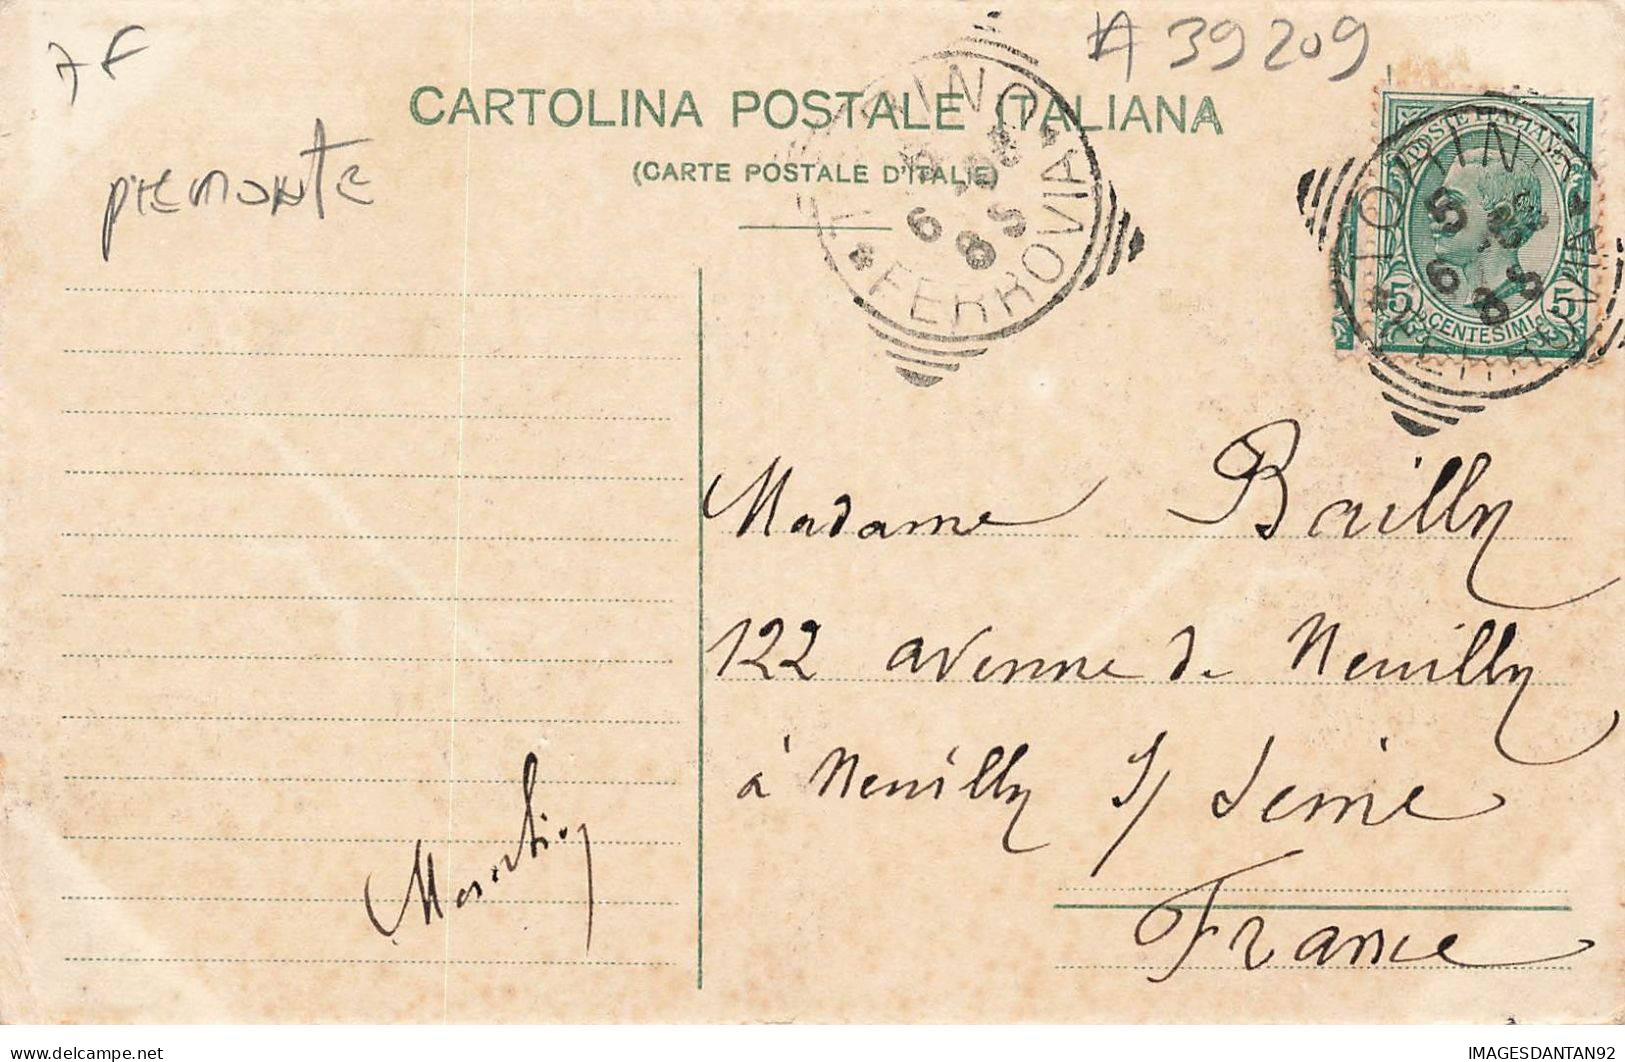 7 F
# 39209
CARTOLINA POSTALE ITALIANA
(CARTE POSTALE D'ITALIE)
PIEMONTE
TORINO
FERROVIA
POSTE ITALIANE
5 CENTESIMI 5
TORINO
FERROVIA
Madame Bailly
122 avenue de Neuilly
à Neuilly s/ Seine
France
delcampe.net
IMAGESDANTAN92